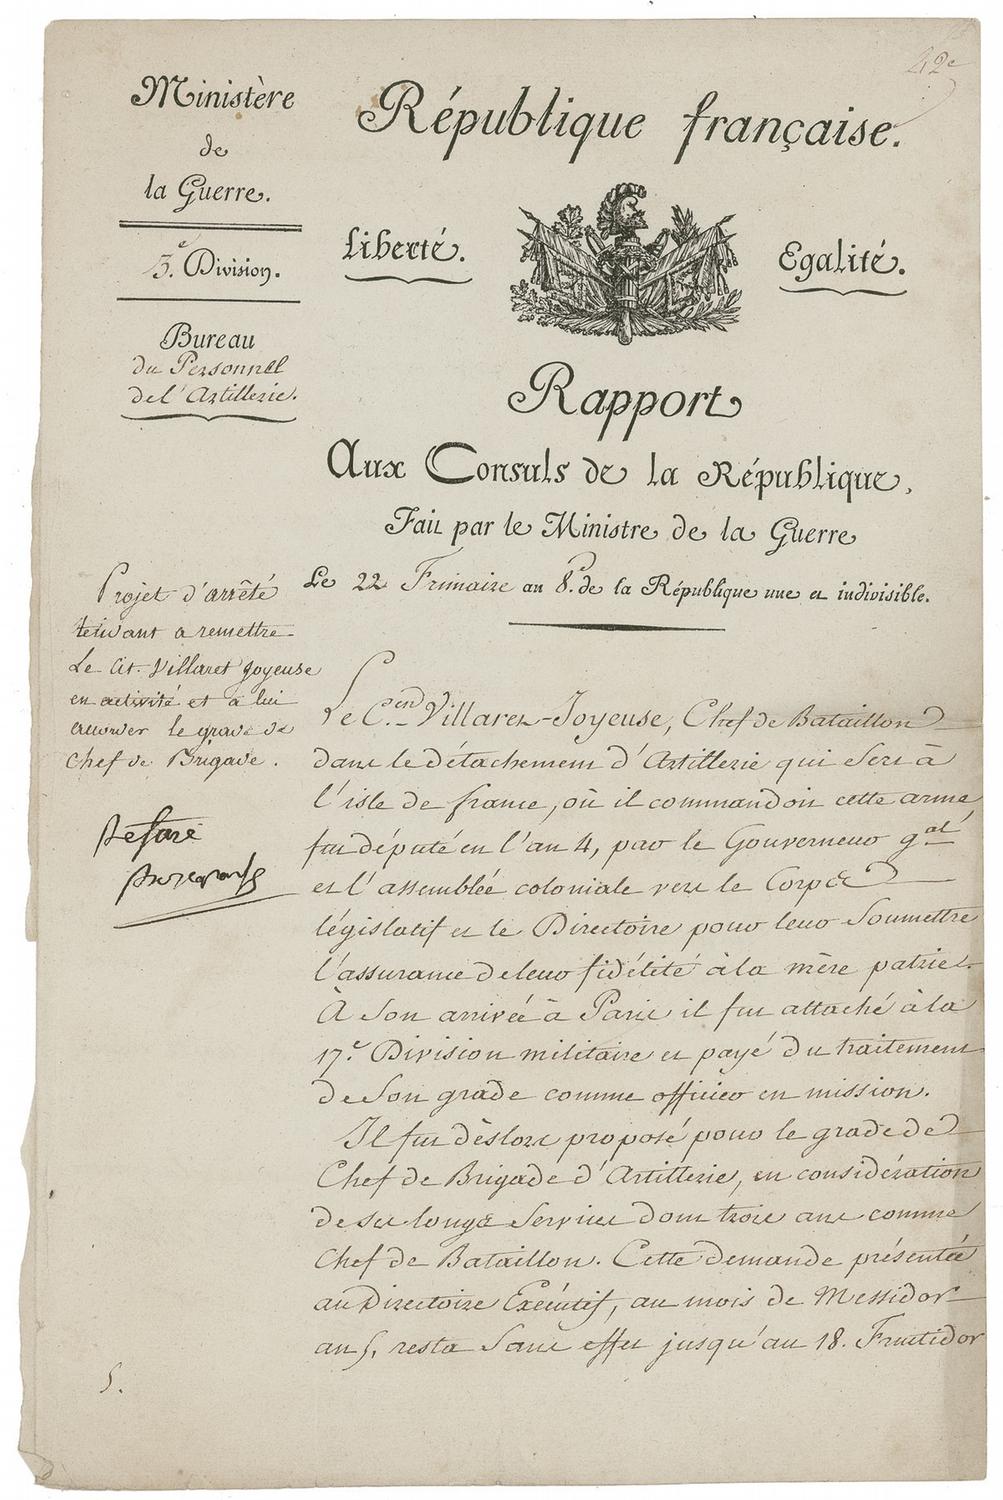 42e
Ministère
de
la Guerre.
3.e Division.
Bureau
du Personnel
de l'Artillerie.
République française.
Liberté.
Egalité.
Rapport
Aux Consuls de la République,
Fait par le Ministre de la Guerre
Le 22 Frimaire an 8.e de la République une et indivisible.
Projet d'arrêté
tendant a remettre
Le Cit. Villaret Joyeuse
en activité et a lui
accorder le grade de
Chef de Brigade.
Le C.en Villaret-Joyeuse, Chef de Bataillon
dans le détachement d'Artillerie qui Sert à
l'isle de france, où il commandoit cette arme,
fut député en l'an 4, par le Gouverneur g.al
et l'assemblée coloniale vers le Corps
législatif et le Directoire pour leur Soumettre
l'assurance de leur fidélité à la mère patrie.
À Son arrivée à Paris il fut attaché à la
17.e Division militaire et payé du traitement
de Son grade comme officier en mission.
Il fut dèslors proposé pour le grade de
Chef de Brigade d'Artillerie, en considération
de ses longs Services dont trois ans comme
Chef de Bataillon. Cette demande présentée
au Directoire Exécutif, au mois de Messidor
an 5, resta Sans effet jusqu'au 18. Fructidor
5.